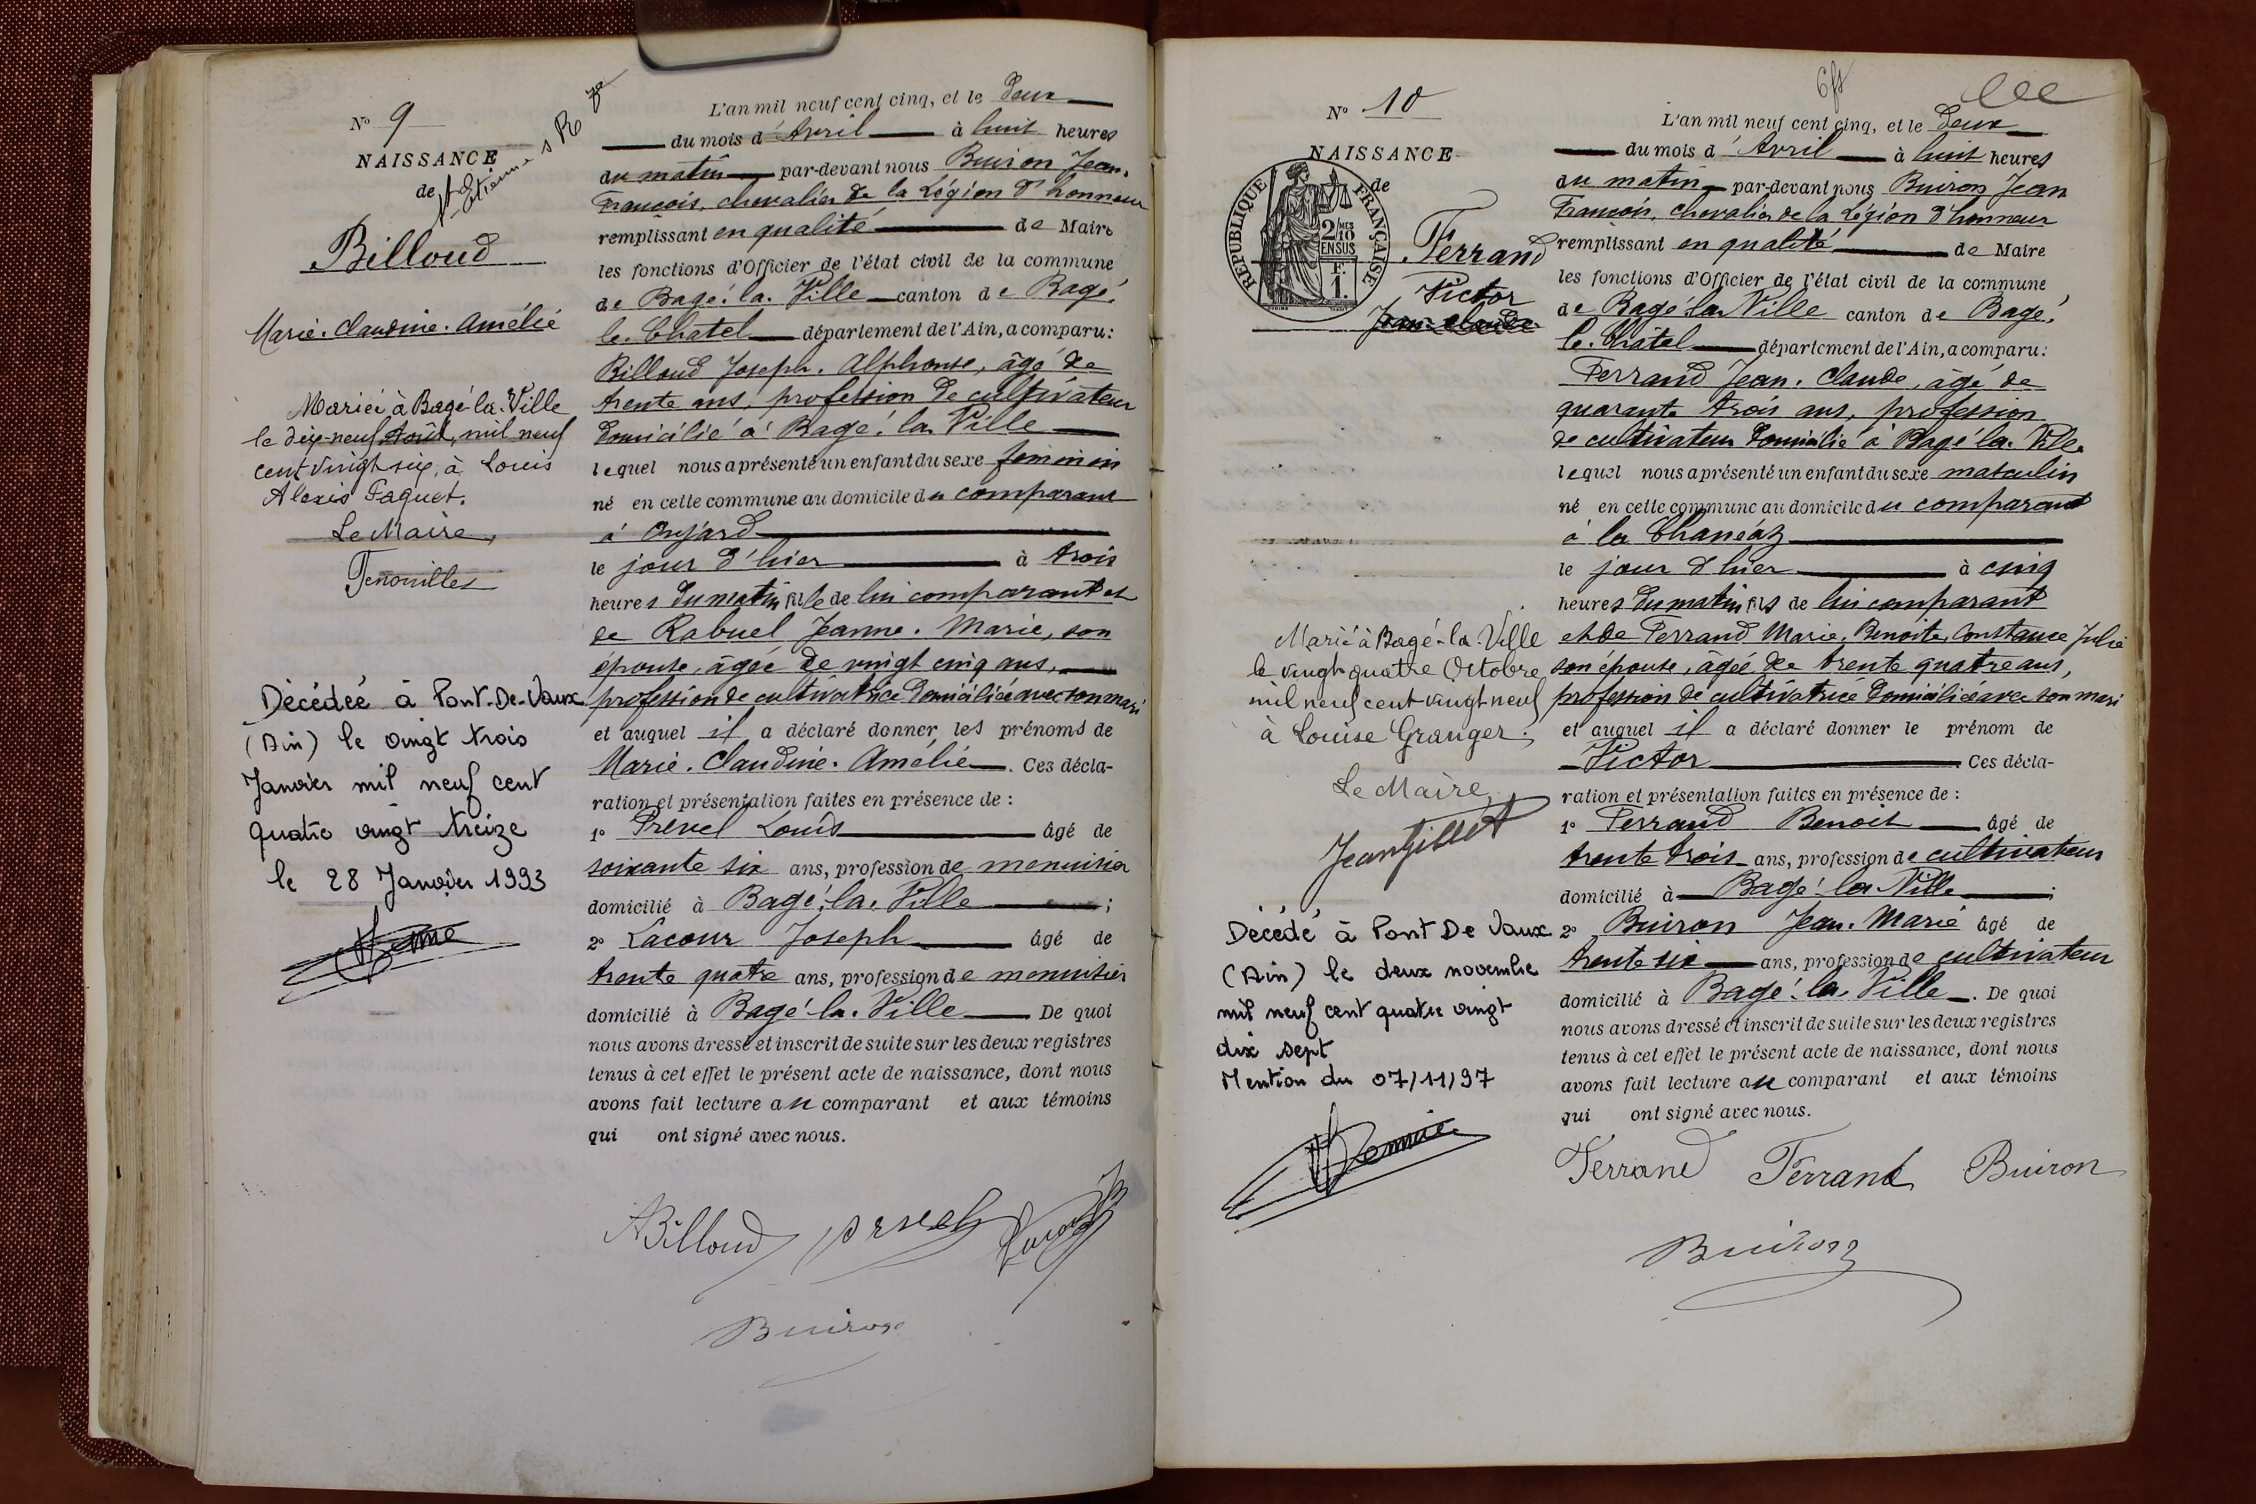 N° 9
NAISSANCE
de
St Etienne s R
Billoud
Marie-Claudine-Amélie
Mariée à Bagé-la-Ville
le dix-neuf Août, mil neuf
cent vingt-six, à Louis
Alexis Paquet.
Le Maire,
Fenouillet
Décédée à Pont-De-Vaux
(Ain) le vingt trois
Janvier mil neuf cent
quatre vingt treize
le 28 Janvier 1993
L'an mil neuf cent cinq, et le deux
du mois d'Avril à huit heures
du matin par-devant nous Buiron Jean-
François, chevalier de la Légion d'honneur
remplissant en qualité de Maire
les fonctions d'Officier de l'état civil de la commune
de Bagé-la-Ville canton de Bagé-
le-Châtel département de l'Ain, a comparu:
Billoud Joseph-Alphonse, âgé de
trente ans, profession de cultivateur
domicilié à Bagé-la-Ville
lequel nous a présenté un enfant du sexe féminin
né en cette commune au domicile du comparant
à Onjard
le jour d'hier à trois
heures du matin fille de lui comparant et
de Rabuel Jeanne-Marie, son
épouse, âgée de vingt cinq ans,
profession de cultivatrice domiciliée avec son mari
et auquel il a déclaré donner les prénoms de
Marie-Claudine-Amélie. Ces décla-
ration et présentation faites en présence de :
1° Prevel Louis âgé de
soixante six ans, profession de menuisier
domicilié à Bagé-la-Ville ;
2° Lacour Joseph âgé de
trente quatre ans, profession de menuisier
domicilié à Bagé-la-Ville. De quoi
nous avons dressé et inscrit de suite sur les deux registres
tenus à cet effet le présent acte de naissance, dont nous
avons fait lecture au comparant et aux témoins
qui ont signé avec nous.
ABilloud Prevel Lacour
Buiron
N° 10
NAISSANCE
de
RÉPUBLIQUE FRANÇAISE
2/10 MES
EN SUS
F.
1.
Ferrand
Victor
Jean-Claude
Marié à Bagé-la-Ville
le vingt-quatre Octobre
mil neuf cent vingt neuf
à Louise Granger.
Le Maire,
Décédé à Pont De Vaux
(Ain) le deux novembre
mil neuf cent quatre vingt
dix sept
Mention du 07/11/97
L'an mil neuf cent cinq, et le deux
du mois d'Avril à huit heures
du matin par-devant nous Buiron Jean
François, chevalier de la Légion d'honneur
remplissant en qualité de Maire
les fonctions d'Officier de l'état civil de la commune
de Bagé-la-Ville canton de Bagé-
le-Châtel département de l'Ain, a comparu:
Ferrand Jean-Claude, âgé de
quarante trois ans, profession
de cultivateur domicilié à Bagé-la-Ville
lequel nous a présenté un enfant du sexe masculin
né en cette commune au domicile du comparant
à la Chanéaz
le jour d'hier à cinq
heures du matin fils de lui comparant
et de Ferrand Marie, Benoite, Constance Julie
son épouse, âgée de trente quatre ans,
profession de cultivatrice domiciliée avec son mari
et auquel il a déclaré donner le prénom de
Victor. Ces décla-
ration et présentation faites en présence de :
1° Ferrand Benoit âgé de
trente trois ans, profession de cultivateur
domicilié à Bagé-la-Ville ;
2° Buiron Jean-Marie âgé de
trente six ans, profession de cultivateur
domicilié à Bagé-la-Ville. De quoi
nous avons dressé et inscrit de suite sur les deux registres
tenus à cet effet le présent acte de naissance, dont nous
avons fait lecture au comparant et aux témoins
qui ont signé avec nous.
Ferrand Ferrand Buiron
Buiron